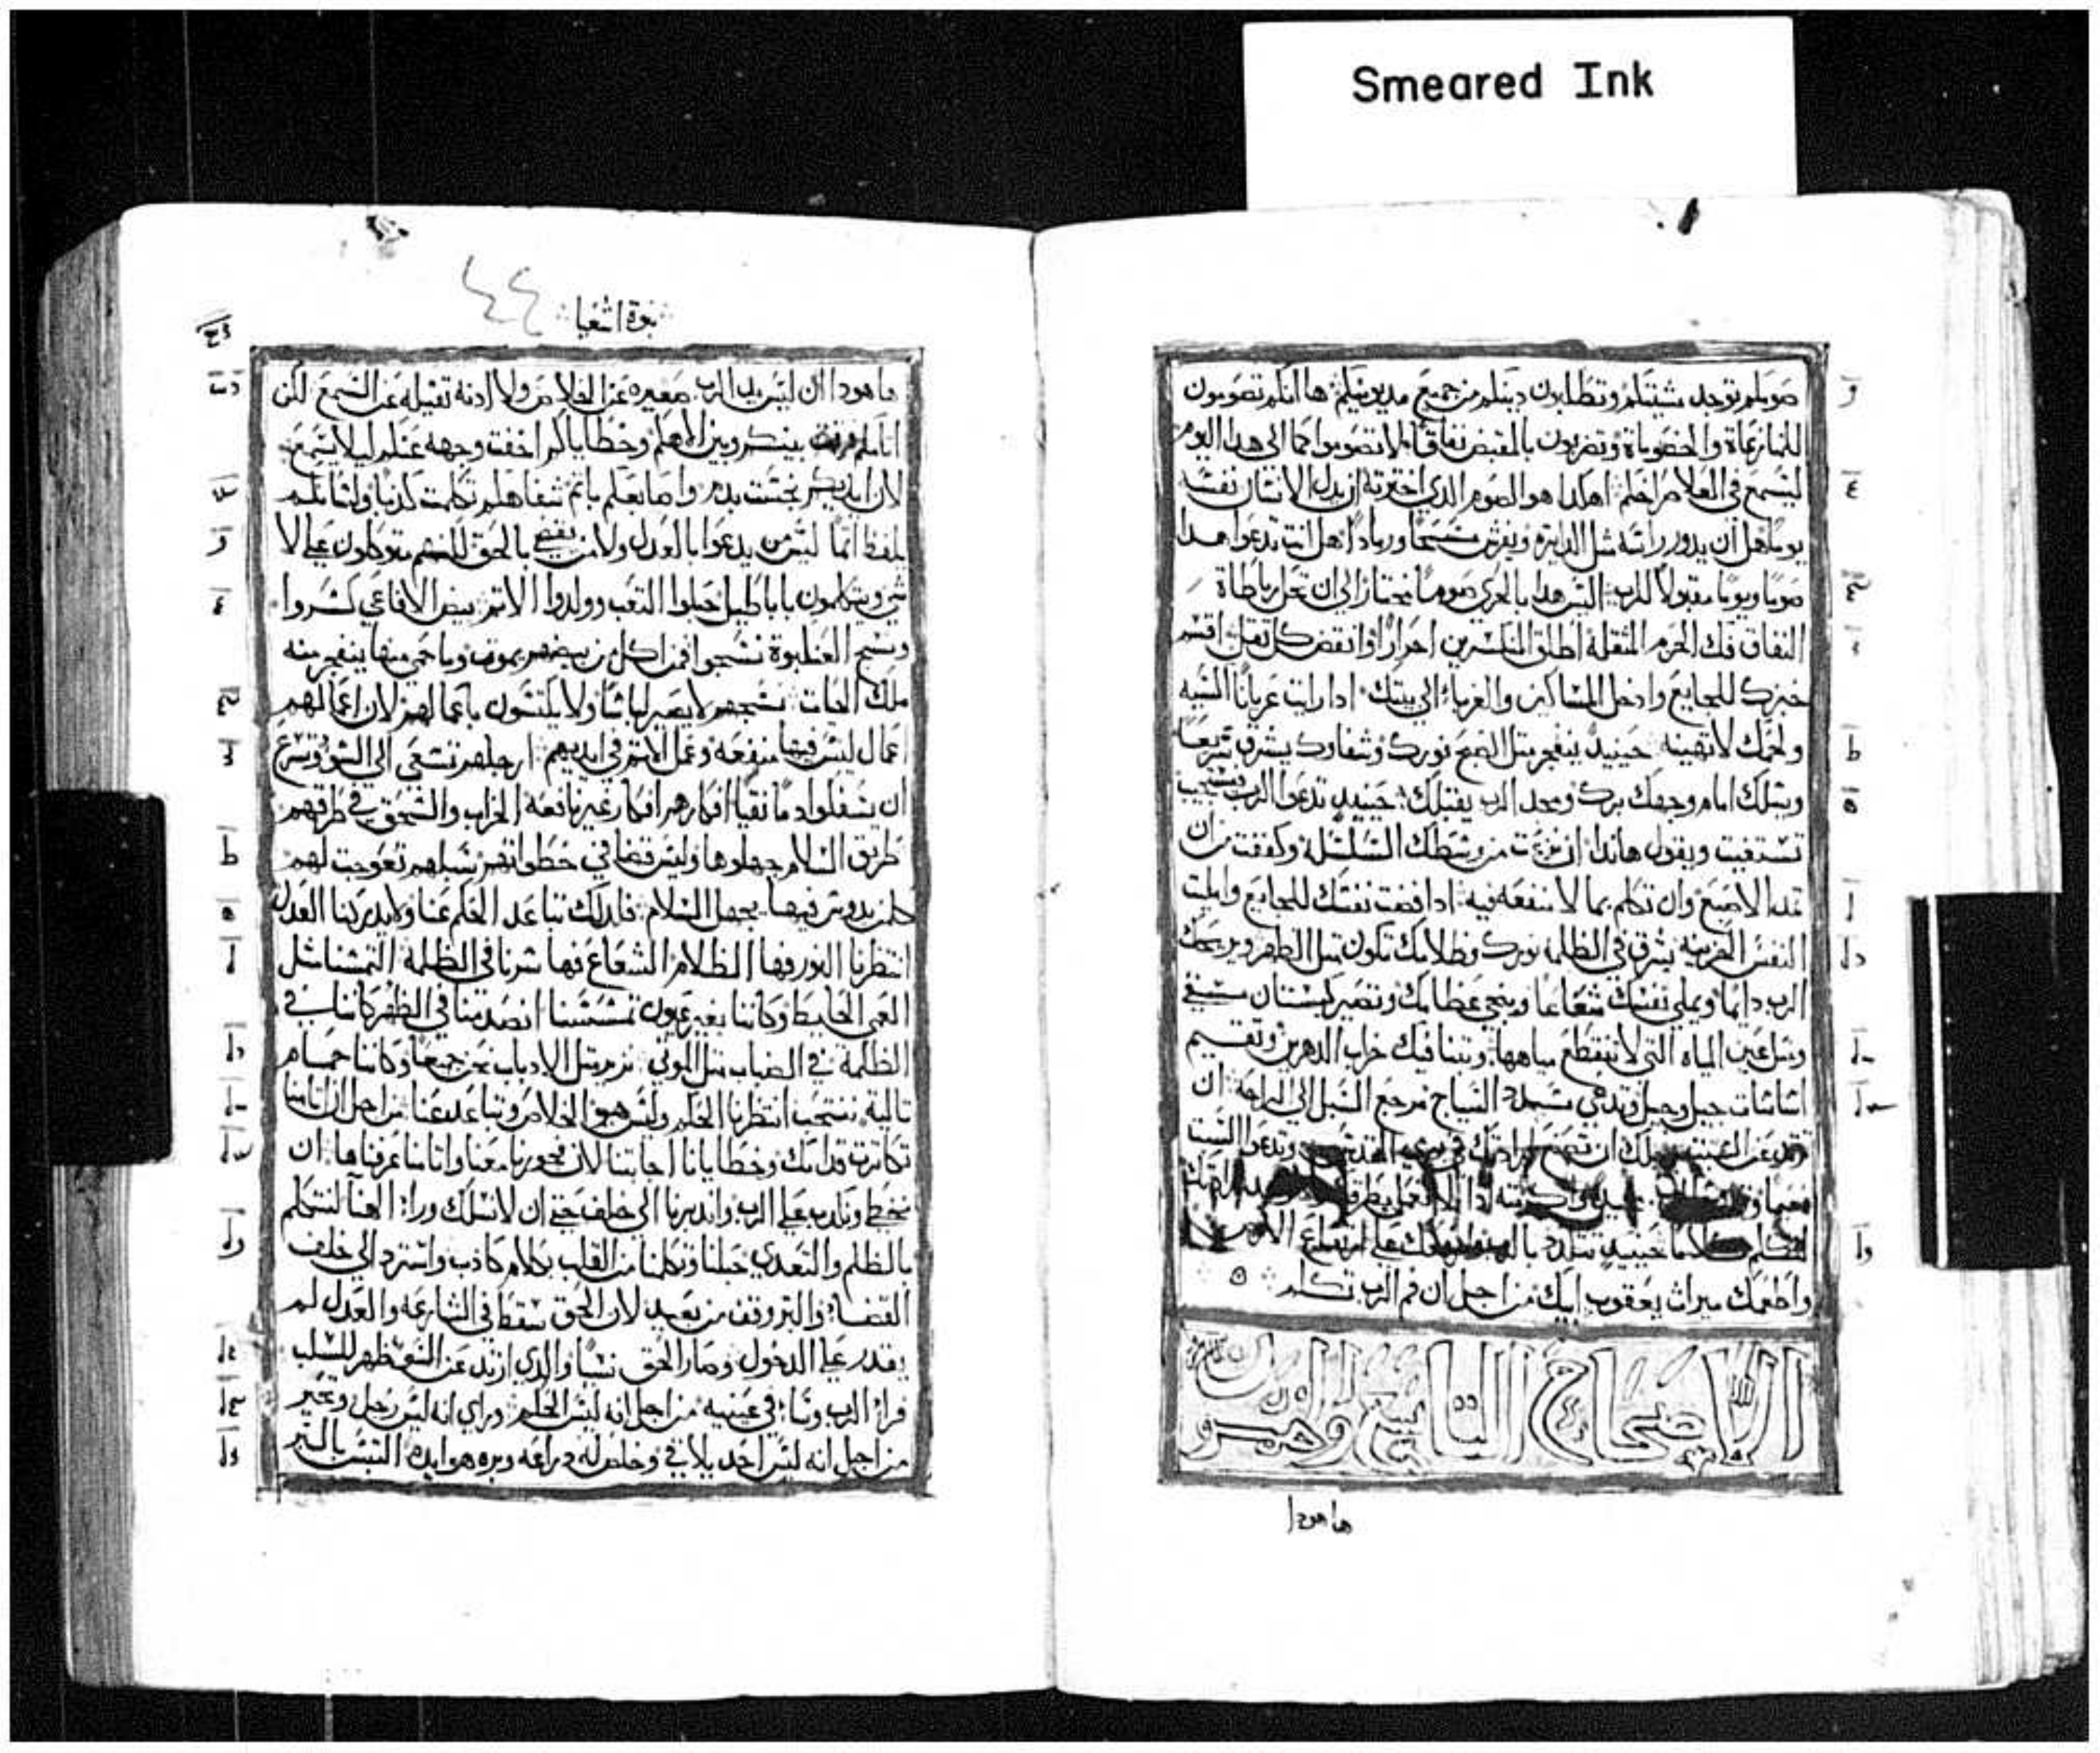 Smeared Ink
صومكم توجد مشيتكم وتطلبون دينكم من جميع مديونيكم ها انكم تصومون
للمنازعاة والخصوماة وتضربون بالقبض نفاقا لا تصوموا كما الى هدا اليوم
ليسمع في العلا صراخكم اهكدا هو الصوم الدي اخترته ان يدل الانسان نفسه
يوما هل ان يدور راسه مثل الدايره ويفرش مسحا ورمادا هل انت تدعوا هدا
صوما ويوما مقبولا للرب اليس هدا بالحري صوما نختار الى ان تحل رباطاة
النفاق فك الحزم المثقلة اطلق المنكسرين احرارا وانقض كل ثقل اقسم
خبزك للجايع وادخل المساكين والغرباء الى بيتك ادا رايت عريانا اكسيه
ولحمك لا تهينه حينيد ينفجر مثل الصبح نورك وشفاوك يشرق سريعا
ويسلك امام وجهك برك ومجد الرب يقبلك حينيد تدعوا الرب يستجيب
تستغيث ويقول هاندا ان نزعت من وسطك السلسلة وكففت من ان
تمد الاصبع وان تكلم بما لا منفعه فيه ادا افضت نفسك للجايع وامليت
النفس الحزينه يشرق في الظلمة نورك وظلامك تكون مثل الظهر ويريحك
الرب دايما ويملي نفسك شعاعا وينجي عظامك وتصير كبستان مسقي
ومثل عين المياه التي لا تنقطع مياهها ويبنا فيك خراب الدهرين وتقيم
اساسات جيل وجيل وتدعي مشيد السياج مرجع السبل الى الراحة ان
السبت ان تصنع في يوم وتدعوا السبت
كلاما حينيد بالرب على ارتفاع الارض
واطعمك ميراث يعقوب ابيك من اجل ان فم الرب تكلم
الاصحاح التاسع والخمسون
ها هودا
نبوة اشعيا
٤٤
ها هودا ان ليس يد الرب صغيره عن الخلاص ولا ادنه تقيله عن السمع لكن
اتامكم فرقت بينكم وبين الاهكم وخطاياكم اخفت وجهه عنكم ليلا يسمع
لان ايديكم تجست بدم واصابعكم باتم شفاهكم تكلمت كدبا ولسانكم
يلفظ اتما ليس من يدعوا بالعدل ولا من يقضي بالحق لكنهم يتوكلون على لا
شي ويتكلمون باباطيل حبلوا التعب وولدوا الاتم بيض الافاعي كسروا
ونسج العنكبوة نسجوا فمن اكل من بيضهم يموت وما حمي منها ينفجر منه
ملك الحيات نسجهم لا يصير لباسا ولا يكتسون باعمالهم لان اعمالهم
اعمال ليس فيها منفعه وعمل الاتم في ايديهم ارجلهم تسعي الى السو وتسرع
ان تسفكوا دما نقيا افكارهم افكار غير نافعه الخراب والسحق في طرقهم
طريق السلام جهلوها وليس قضا في خطواتهم سبلهم تعوجت لهم
كلمن يدوس فيها يجهل السلام فلدلك تباعد الحكم عنا ولا يدركنا العدل
انتظرنا النور فها الظلام الشعاع فها سرنا في الظلمة التمسنا مثل
العمى الحايط وكاننا بغير عيون تمسسنا انصدمنا في الظهر كاننا في
الظلمة في الضباب مثل الموتي نزمر مثل الادباب نحن جميعا وكاننا حمام
تالية ننتحب انتظرنا الحكم وليس هو الخلاص وتباعد عنا من اجل ان اتامنا
تكاترت قدامك وخطايانا اجابتنا لان فجورنا معنا واتامنا عرفناها ان
نخطي ونكدب على الرب واندبرنا الى خلف حتي ان لا نسلك ورا الهنا لنتكلم
بالظلم والتعدي حبلنا وتكلمنا من القلب بكلام كادب واسترد الى خلف
القضا والبر وقف من بعيد لان الحق سقط في الشارعه والعدل لم
يقدر على الدخول وصار الحق نسيا والدي ارتد عن السو ظهر للسلب
فراى الرب وسا في عينيه من اجل انه ليس الحكم وراى انه ليس رجل وتحير
من اجل انه ليس احد يلاقي وخلص له دراعه وبره هو ايده التبس بالبر